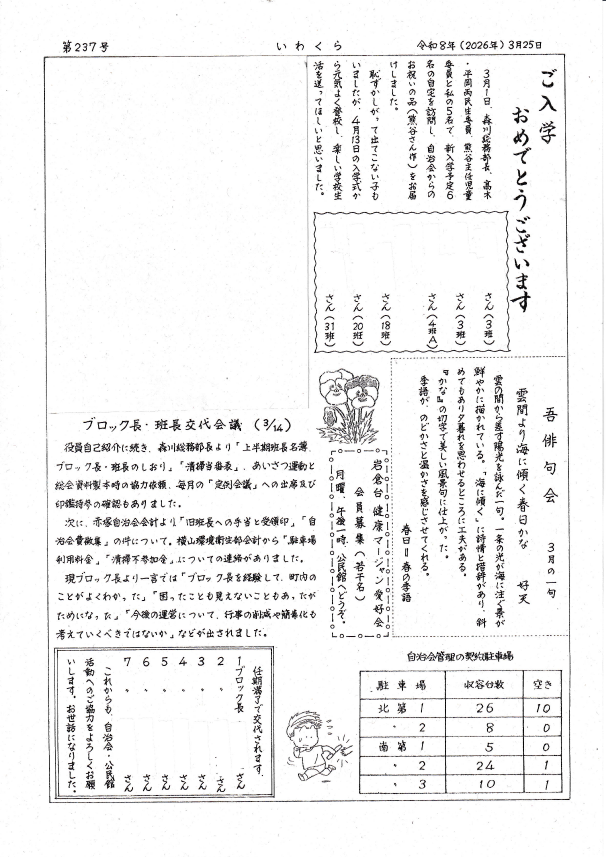 第237号
いわくら
令和8年(2026年)3月25日
ご入学
おめでとうございます
3月1日、森川総務部長、高木
・平岡両民生委員、熊谷主任児童
委員と私の5名で、新入学予定6
名の自宅を訪問し、自治会からの
お祝いの品(熊谷さん作)をお届
けしました。
恥ずかしがって出てこない子も
いましたが、4月13日の入学式か
ら元気よく登校し、楽しい学校生
活を送ってほしいと思いました。
さん(3班)
さん(3班)
さん(4班A)
さん(18班)
さん(20班)
さん(31班)
吾俳句会 3月の一句
雲間より海に傾く春日かな 好天
雲の間から差す陽光を詠んだ一句。一条の光が海に注ぐ景が
鮮やかに描かれている。「海に傾く」に詩情と措辞があり、斜
めでもあり夕暮れを思わせるところに工夫がある。
『かな』の切字で美しい風景句に仕上がった。
季語が、のどかさと温かさを感じさせてくれる。
春日=春の季語
岩倉台健康マージャン愛好会
会員募集(若干名)
月曜、午後一時、公民館へどうぞ。
ブロック長・班長交代会議(3/14)
役員自己紹介に続き、森川総務部長より「上半期班長名簿、
ブロック長・班長のしおり」「清掃当番表」、あいさつ運動と
総会資料製本時の協力依頼、毎月の「定例会議」への出席及び
印鑑持参の確認もありました。
次に、赤塚自治会会計より「旧班長への手当と受領印」「自
治会費徴集」の件について。横山環境衛生部会計から「駐車場
利用料金」「清掃不参加金」についての連絡がありました。
現ブロック長より一言では「ブロック長を経験して、町内の
ことがよくわかった」「困ったことも見えないこともあったが
ためになった」「今後の運営について、行事の削減や簡素化も
考えていくべきではないか」などが出されました。
任期満了で交代されます。
1ブロック長 さん
2 〃 さん
3 〃 さん
4 〃 さん
5 〃 さん
6 〃 さん
7 〃 さん
これからも、自治会・公民館
活動へのご協力をよろしくお願
いします。お世話になりました。
自治会管理の契約駐車場
駐車場 収容台数 空き
北第1 26 10
〃 2 8 0
南第1 5 0
〃 2 24 1
〃 3 10 1